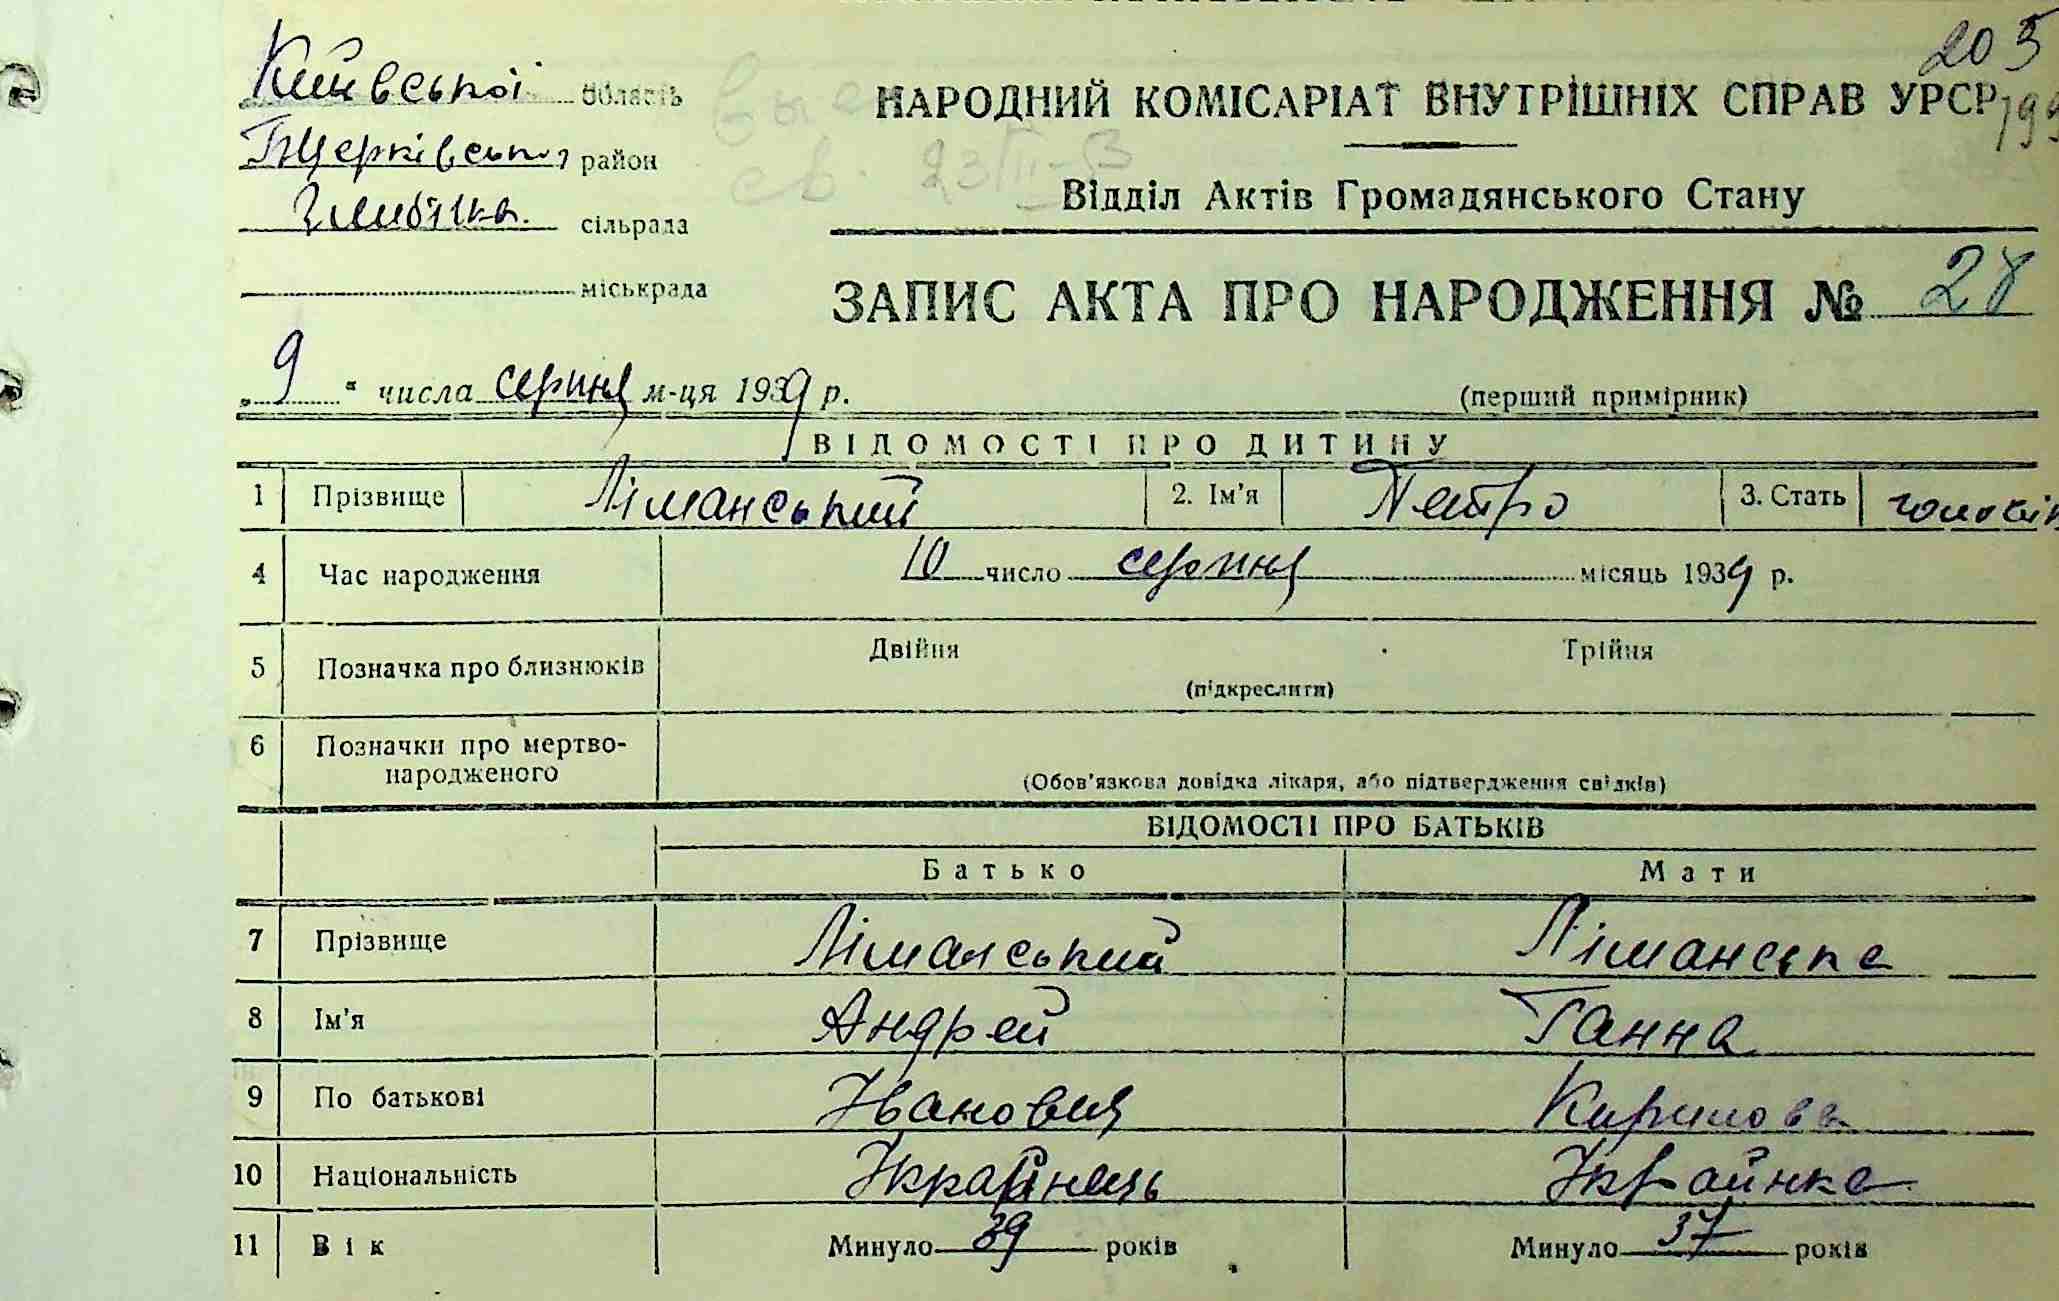 205
199
Київської область
НАРОДНИЙ КОМІСАРІАТ ВНУТРІШНІХ СПРАВ УРСР
Бцерківськ. район
св. 23/III-
Відділ Актів Громадянського Стану
сільрада
міськрада
ЗАПИС АКТА ПРО НАРОДЖЕННЯ № 28
„9“ числа серпня м-ця 1939 р.
(перший примірник)
ВІДОМОСТІ ПРО ДИТИНУ
1 Прізвище Ліманський 2. Ім'я Петро 3. Стать
4 Час народження 10 число серпня місяць 1939 р.
5 Позначка про близнюків Двійня Трійня
(підкреслити)
6 Позначки про мертво-
народженого
(Обов'язкова довідка лікаря, або підтвердження свідків)
ВІДОМОСТІ ПРО БАТЬКІВ
Батько Мати
7 Прізвище Ліманський Ліманська
8 Ім'я Андрей Ганна
9 По батькові Іванович Кирилова
10 Національність Українець Українка
11 Вік Минуло 39 років Минуло 37 років